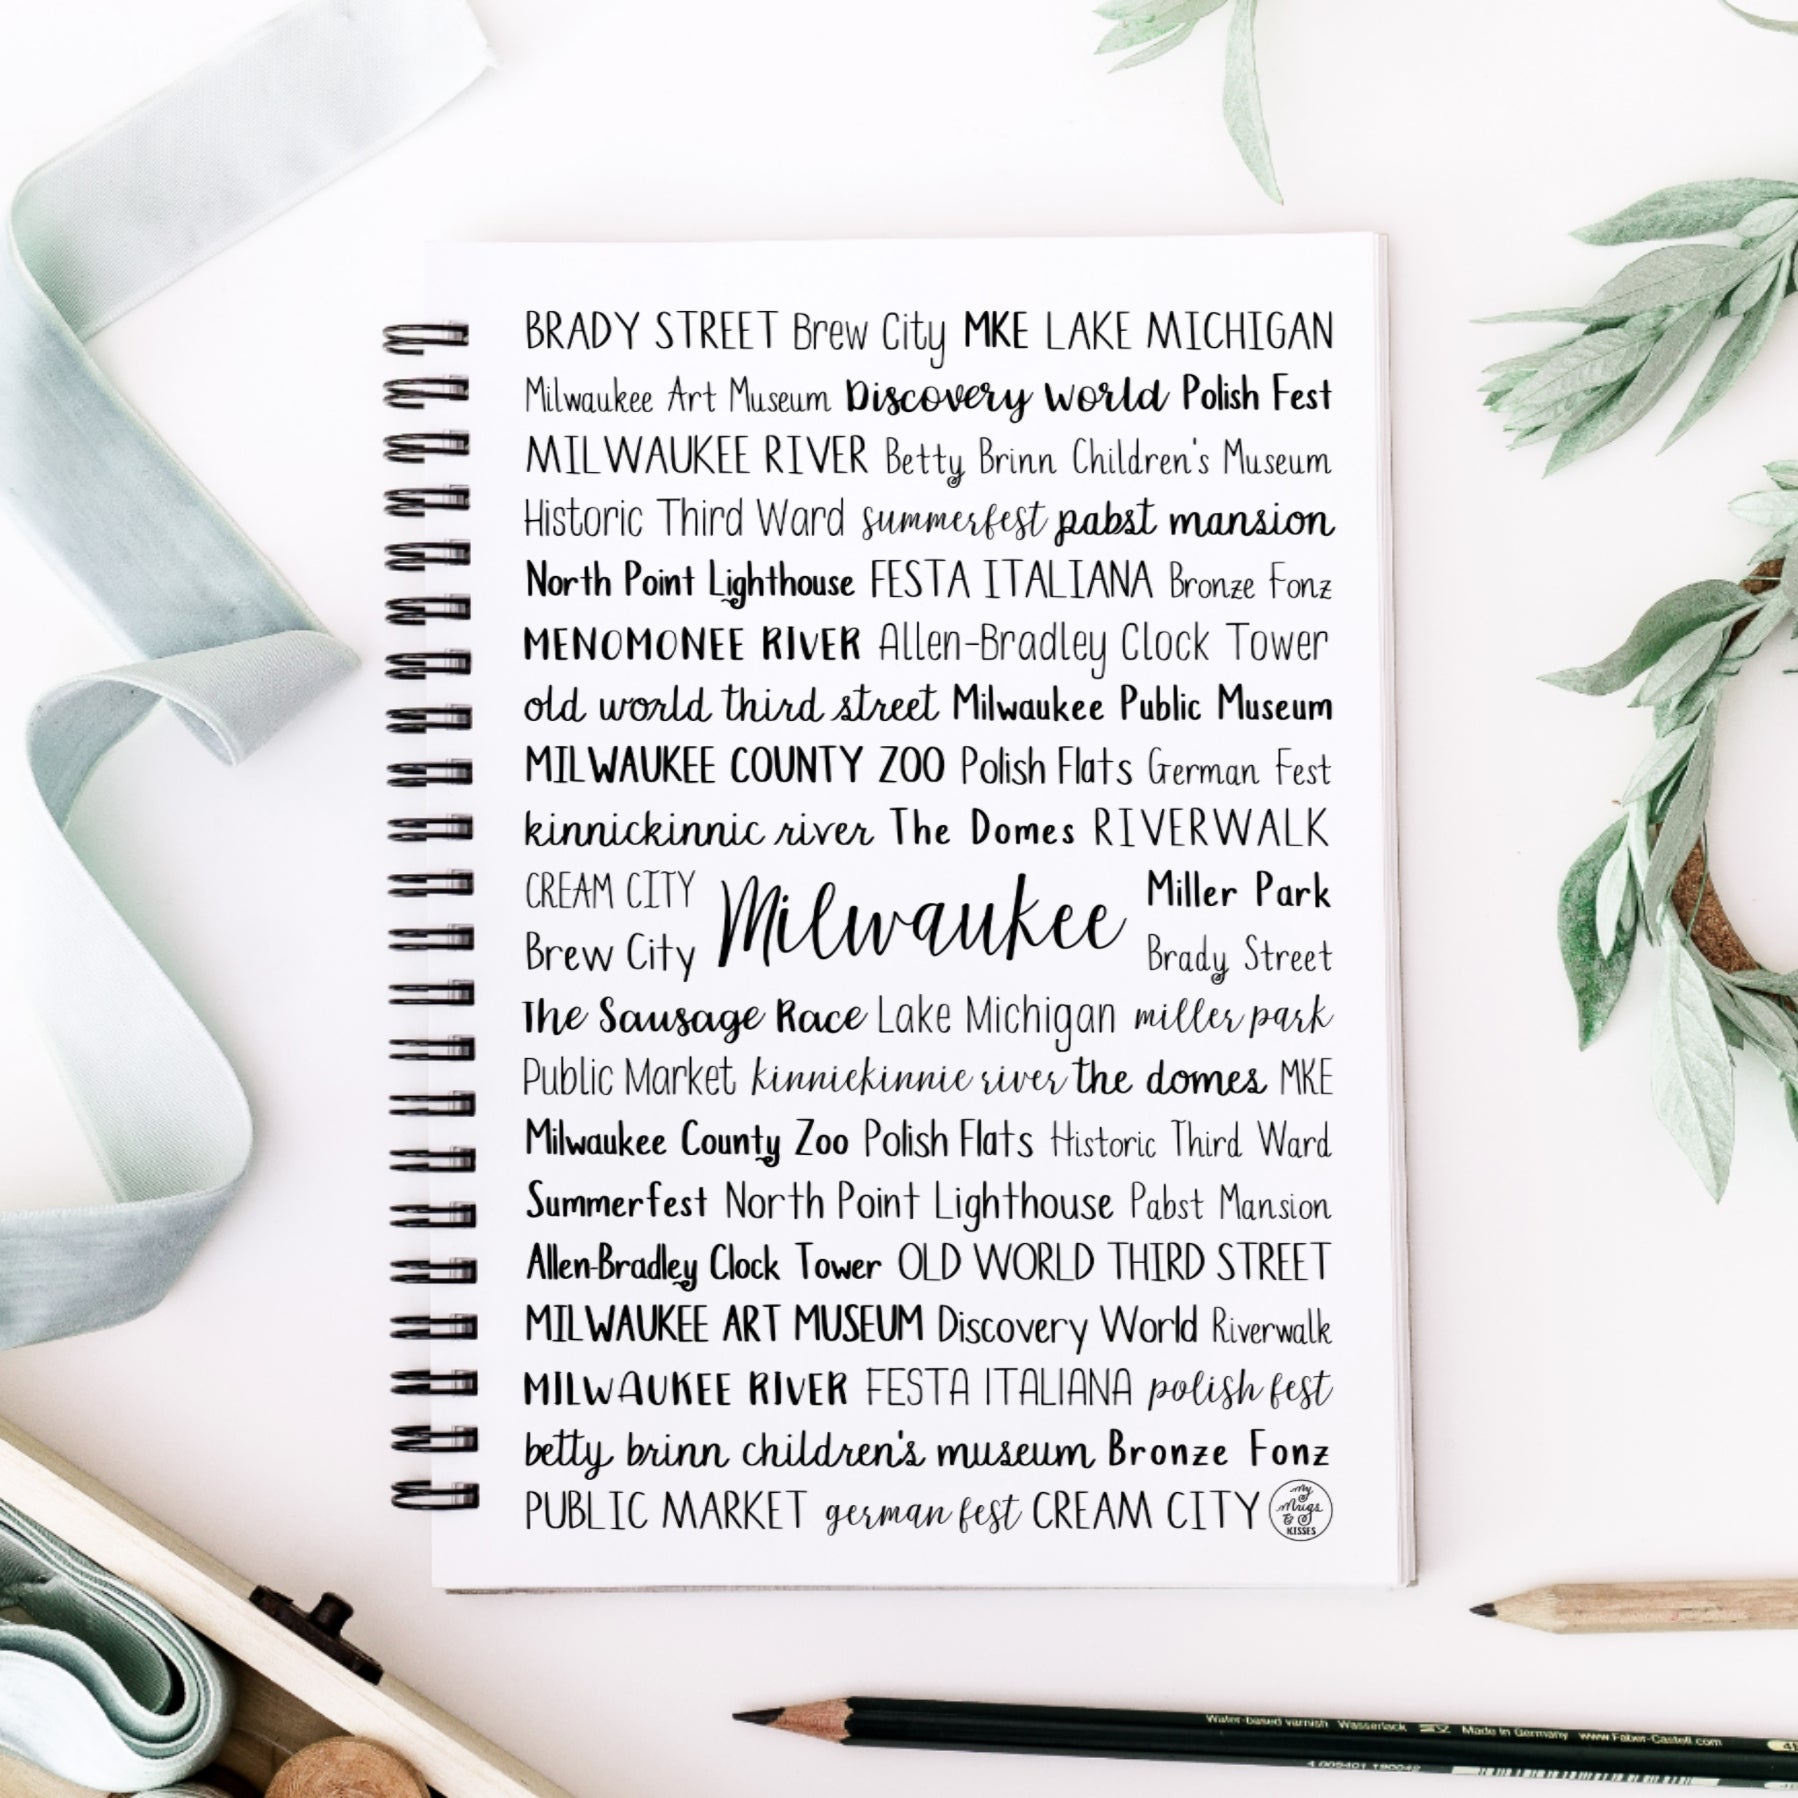 BRADY STREET Brew City MKE LAKE MICHIGAN
Milwaukee Art Museum Discovery World Polish Fest
MILWAUKEE RIVER Betty Brinn Children's Museum
Historic Third Ward summerfest pabst mansion
North Point Lighthouse FESTA ITALIANA Bronze Fonz
MENOMONEE RIVER Allen-Bradley Clock Tower
old world third street Milwaukee Public Museum
MILWAUKEE COUNTY ZOO Polish Flats German Fest
kinnickinnic river The Domes RIVERWALK
CREAM CITY Milwaukee Miller Park
Brew City Brady Street
The Sausage Race Lake Michigan miller park
Public Market kinnickinnic river the domes MKE
Milwaukee County Zoo Polish Flats Historic Third Ward
Summerfest North Point Lighthouse Pabst Mansion
Allen-Bradley Clock Tower OLD WORLD THIRD STREET
MILWAUKEE ART MUSEUM Discovery World Riverwalk
MILWAUKEE RIVER FESTA ITALIANA polish fest
betty brinn children's museum Bronze Fonz
PUBLIC MARKET german fest CREAM CITY
my
Mugs
&
KISSES
Water-based varnish Wasserlack Made in Germany www.Faber-Castell.com
4 005401 190042